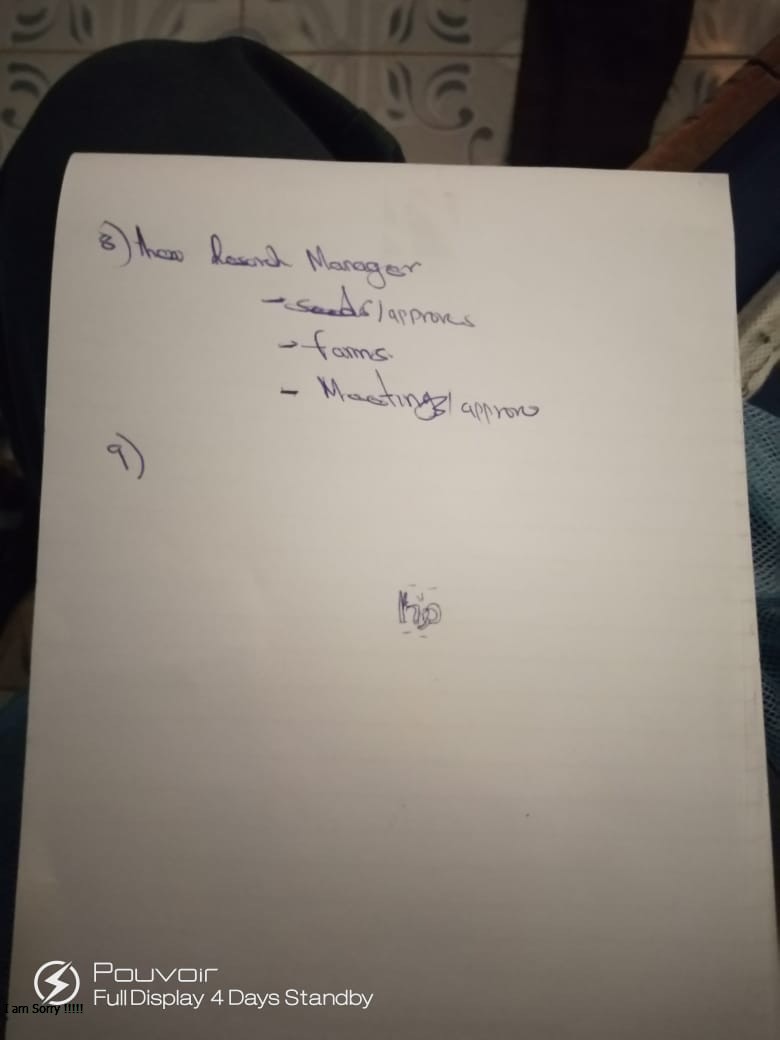 8) Research Manager
- seeds/approves
- farms.
- Meetings/approve
9)
Pouvoir
Full Display 4 Days Standby
I am Sorry !!!!!